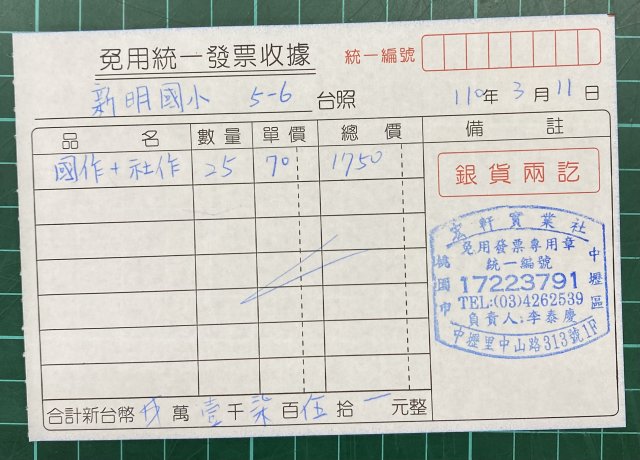 免用統一發票收據
統一編號
新明國小 5-6 台照
110年3月11日
品名 數量 單價 總價 備註
國作+社作 25 70 1750
銀貨兩訖
宏軒實業社
免用發票專用章
統一編號
17223791
TEL:(03)4262539
負責人:李泰慶
桃園市
中壢區
中壢里中山路313號1F
合計新台幣 萬壹千柒百伍拾 元整